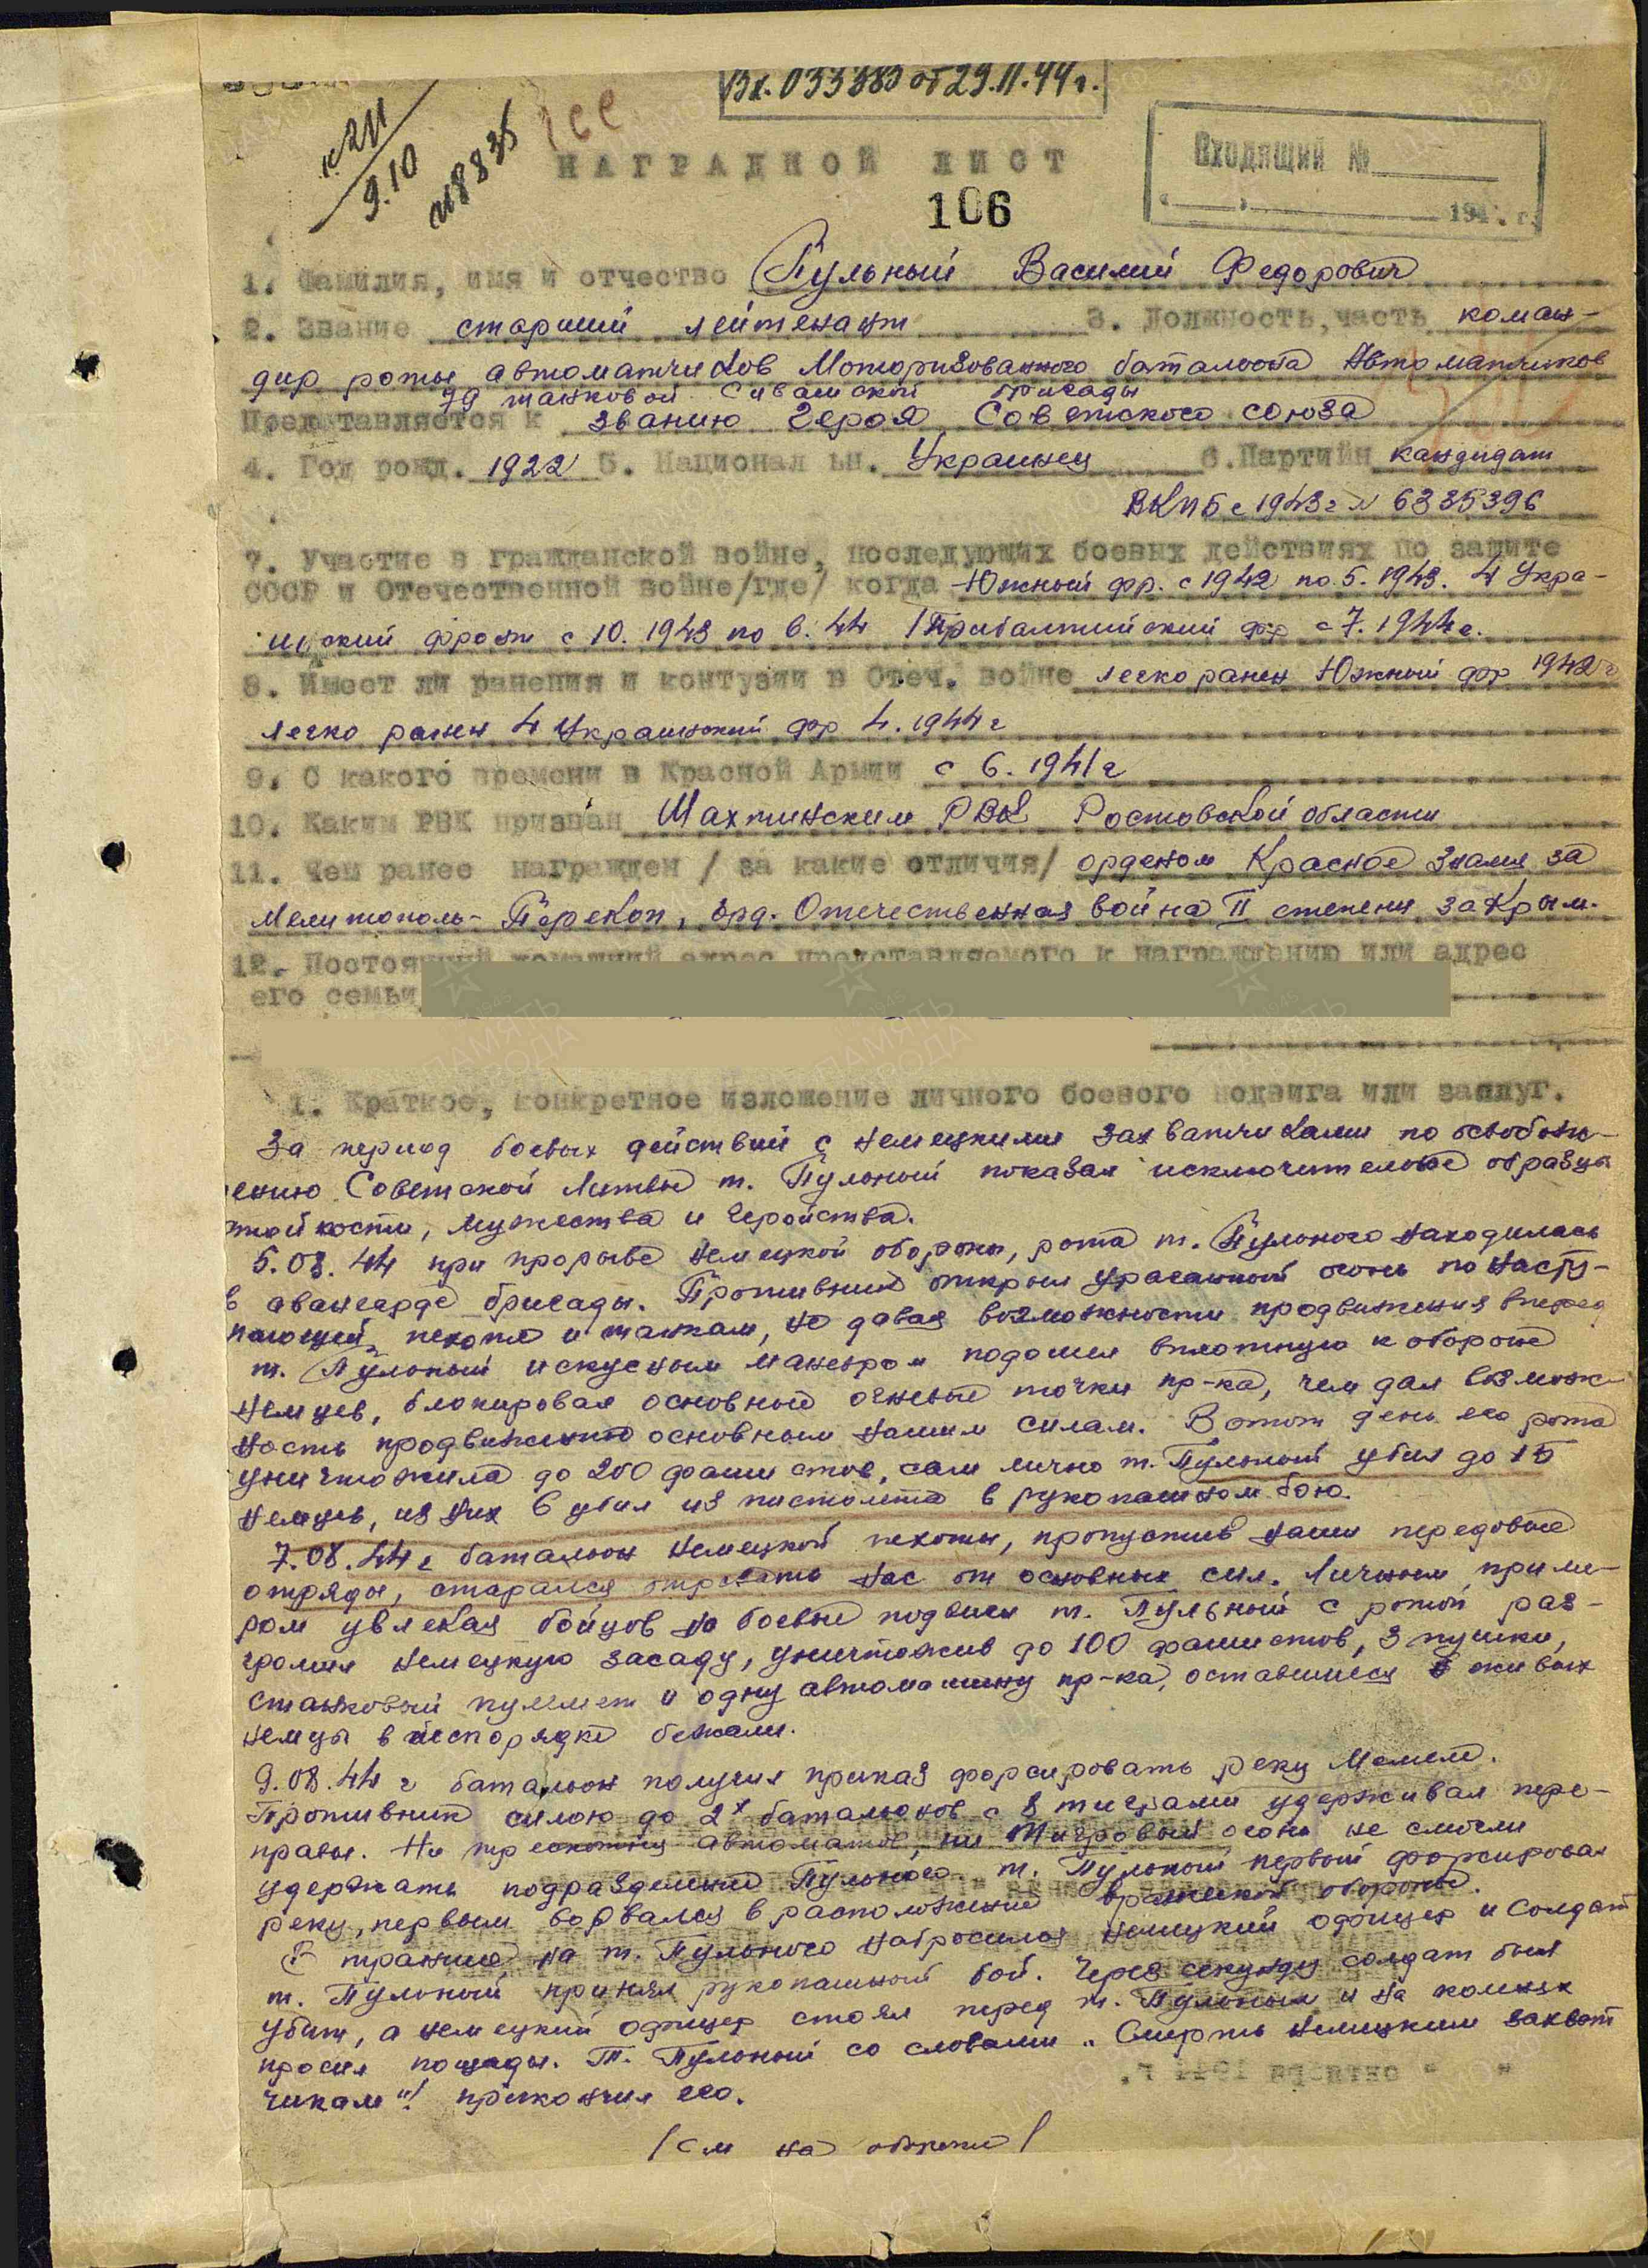 Вх. 033383 от 29.11.44 г.
9.10
Входящий №
194 . г.
НАГРАДНОЙ ЛИСТ
106
1. Фамилия, имя и отчество Пульный Василий Федорович
2. Звание старший лейтенант 3. Должность, часть коман-
дир роты автоматчиков Моторизованного баталиона Автоматчиков
79 танковой Сивашской бригады
Представляется к званию Героя Советского союза
4. Год рожд. 1922 5. Национальн. Украинец 6. Партийн кандидат
ВКПБ с 1943 г № 6335396
7. Участие в гражданской войне, последующих боевых действиях по защите
СССР и Отечественной войне/где/ когда Южный фр. с 1942 по 5. 1943. 4 Укра-
инский фронт с 10. 1943 по 6. 44 1 Прибалтийский фр с 7. 1944 г.
8. Имеет ли ранения и контузии в Отеч. войне легко ранен Южный фр 1942 г
легко ранен 4 Украинский фр 4. 1944 г
9. С какого времени в Красной Армии с 6. 1941 г
10. Каким РВК призван Шахтинским РВК Ростовской области
11. Чем ранее награжден / за какие отличия/ орденом Красное Знамя за
Мелитополь - Перекоп, орд. Отечественная война II степени за Крым.
12. Постоянный домашний адрес представляемого к награждению или адрес
его семьи
1. Краткое, конкретное изложение личного боевого подвига или заслуг.
За период боевых действий с немецкими захватчиками по освобож-
ению Советской Литвы т. Пульный показал исключительные образцы
стойкости, мужества и Геройства.
5.08.44 при прорыве немецкой обороны, рота т. Пульного находилась
в авангарде бригады. Противник открыл ураганный огонь по насту-
пающей пехоте и танкам, не давая возможности продвижения вперед
т. Пульный искусным маневром подошел вплотную к обороне
немцев, блокировал основные огневые точки пр-ка, чем дал возмож-
ность продвижению основным нашим силам. В этот день его рота
уничтожила до 200 фашистов, сам лично т. Пульный убил до 15
немцев, из них 6 убил из пистолета в рукопашном бою.
7.08.44 г баталион немецкой пехоты, пропустив наши передовые
отряды, старался отрезать нас от основных сил. Личным приме-
ром увлекая бойцов на боевые подвиги т. Пульный с ротой раз-
громил немецкую засаду, уничтожив до 100 фашистов, 3 пушки,
станковый пулемет и одну автомашину пр-ка, оставшиеся в живых
немцы в беспорядке бежали.
9.08.44 г баталион получил приказ форсировать реку Мемеле.
Противник силою до 2х баталионов с 8 тиграми удерживал пере-
правы. Ни трескотня автоматов, ни Тигровый огонь не смогли
удержать подразделение Пульного. т. Пульный первый форсировал
реку, первым ворвался в расположение вражеской обороны.
В траншее на т. Пульного набросился немецкий офицер и солдат
т. Пульный принял рукопашный бой. Через секунду солдат был
убит, а немецкий офицер стоял перед т. Пульным и на коленях
просил пощады. Т. Пульный со словами „ Смерть немецким захват
чикам"! прикончил его.
/ см на обороте /